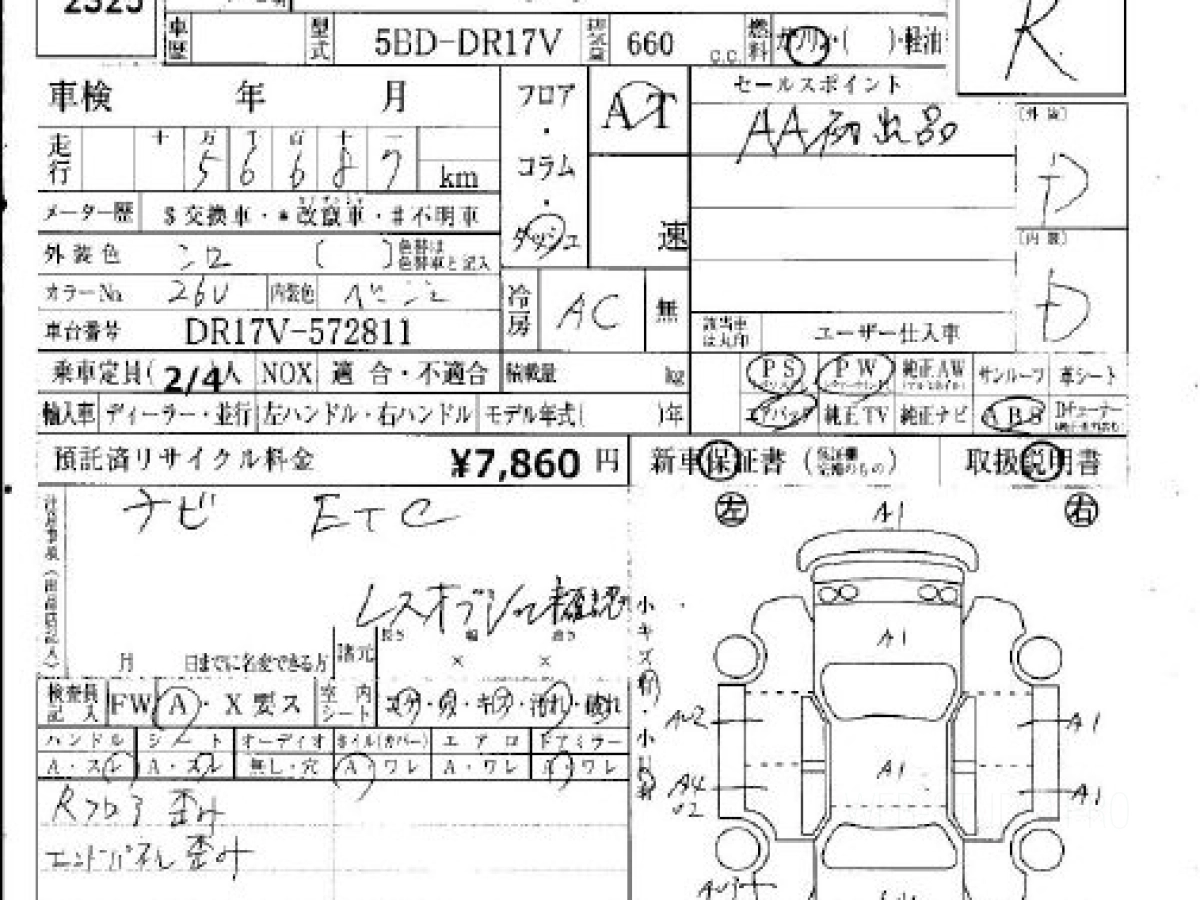 2325
車歴 型式 5BD-DR17V 排気量 660 c.c. 燃料 ガソリン・( )・軽油
R
車検 年 月
フロア・コラム・ダッシュ
AT
速
セールスポイント
AA初出品
[外装]
D
走行 十 万 千 百 十 一
5 6 6 8 7 km
メーター歴 $交換車・*改竄車・#不明車
外装色 シロ ( ) 色替は色替車と記入
[内装]
D
カラーNo. 26U 内装色 ベージュ
冷房 AC 無
車台番号 DR17V-572811
該当車は丸印 ユーザー仕入車
乗車定員( 2/4 人 NOX 適合・不適合 積載量 kg
PS PW 純正AW サンルーフ 革シート
輸入車 ディーラー・並行 左ハンドル・右ハンドル モデル年式( )年
エアバッグ 純正TV 純正ナビ ABS
預託済リサイクル料金 ¥7,860 円
新車保証書 取扱説明書
ナビ ETC
左 A1 右
レスオプション確認
月 日までに名変できる方
諸元 長さ × 幅 × 高さ
検査員記入 FW A・X要ス 室内シート コゲ・穴・キズ・汚れ・破れ
ハンドル シート オーディオ ホイル(カバー) エアロ ドアミラー
A・スレ A・スレ 無し・穴 A・ワレ A・ワレ A・ワレ
小キズ有・小凹有
Rフロア 歪み
エンドパネル歪み
A1
A2 A1
A1
A4 A1
U2